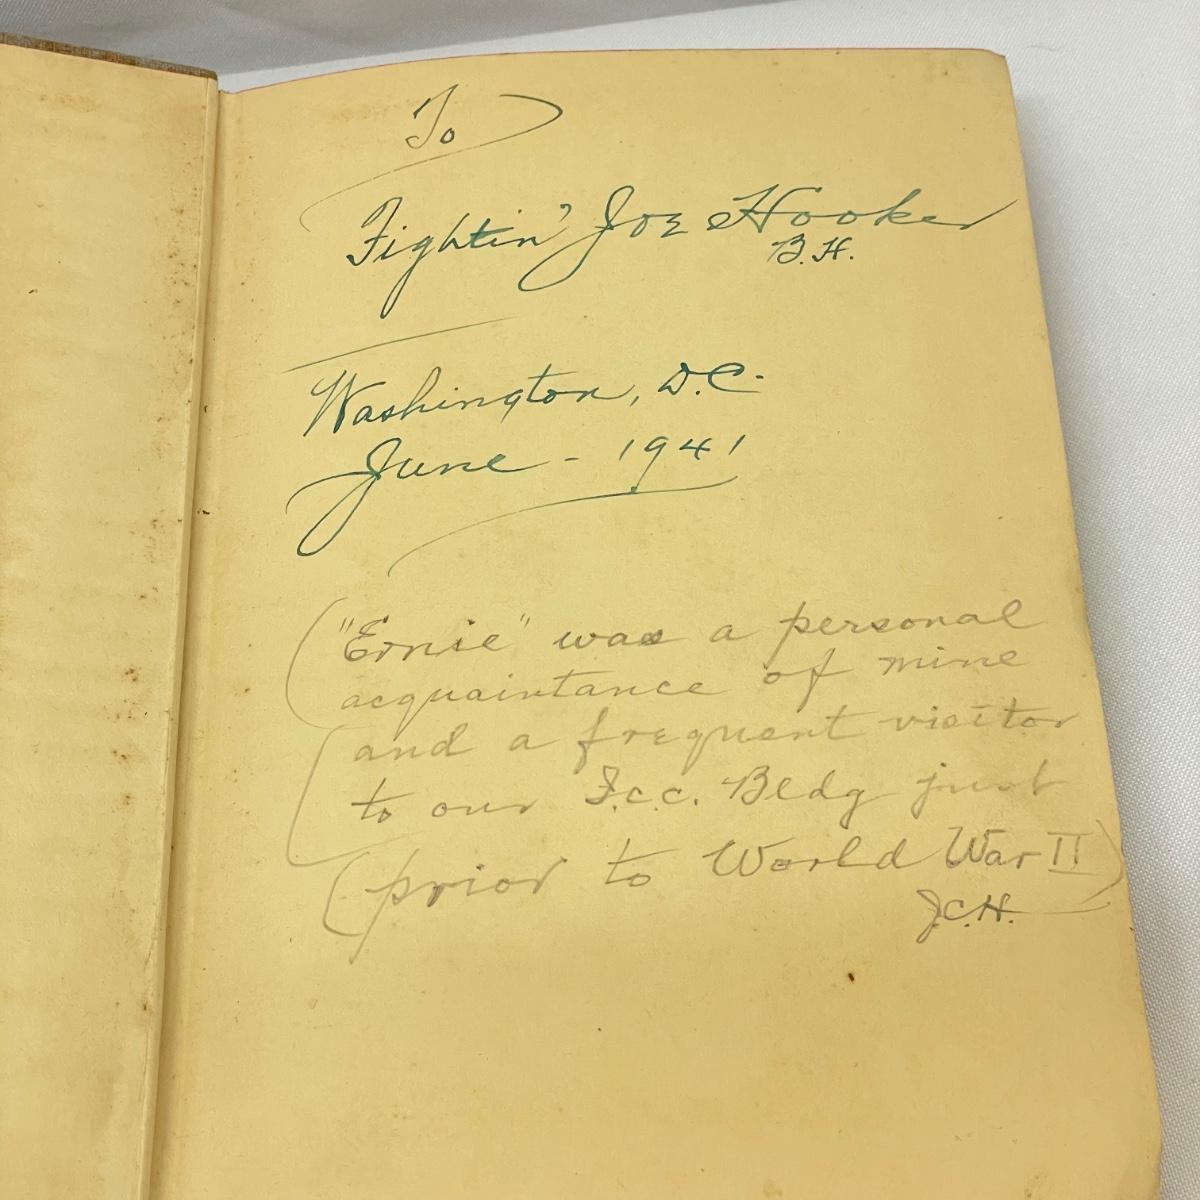 To
Fightin' Joe Hooker
B.H.
Washington, D.C.
June - 1941
("Ernie" was a personal
acquaintance of mine
and a frequent visitor
to our F.C.C. Bldg just
(prior to World War II)
J.C.H.